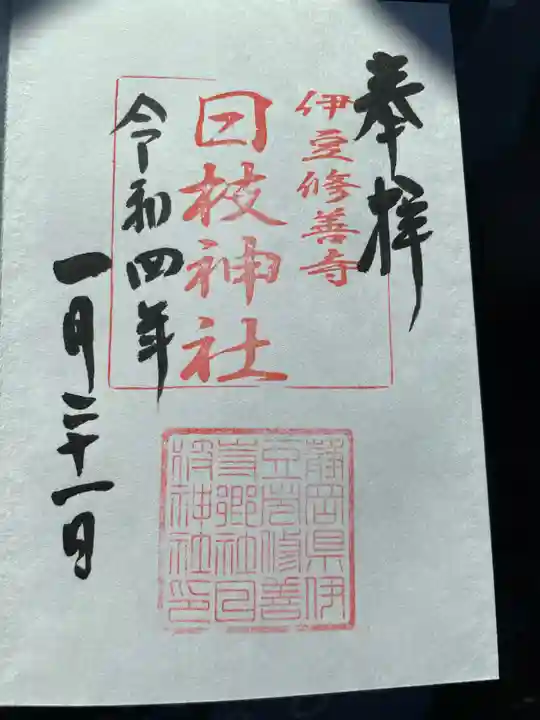 奉拝
伊豆修善寺
日枝神社
令和四年
一月二十一日
静岡県伊
豆国修善
寺郷社日
枝神社印